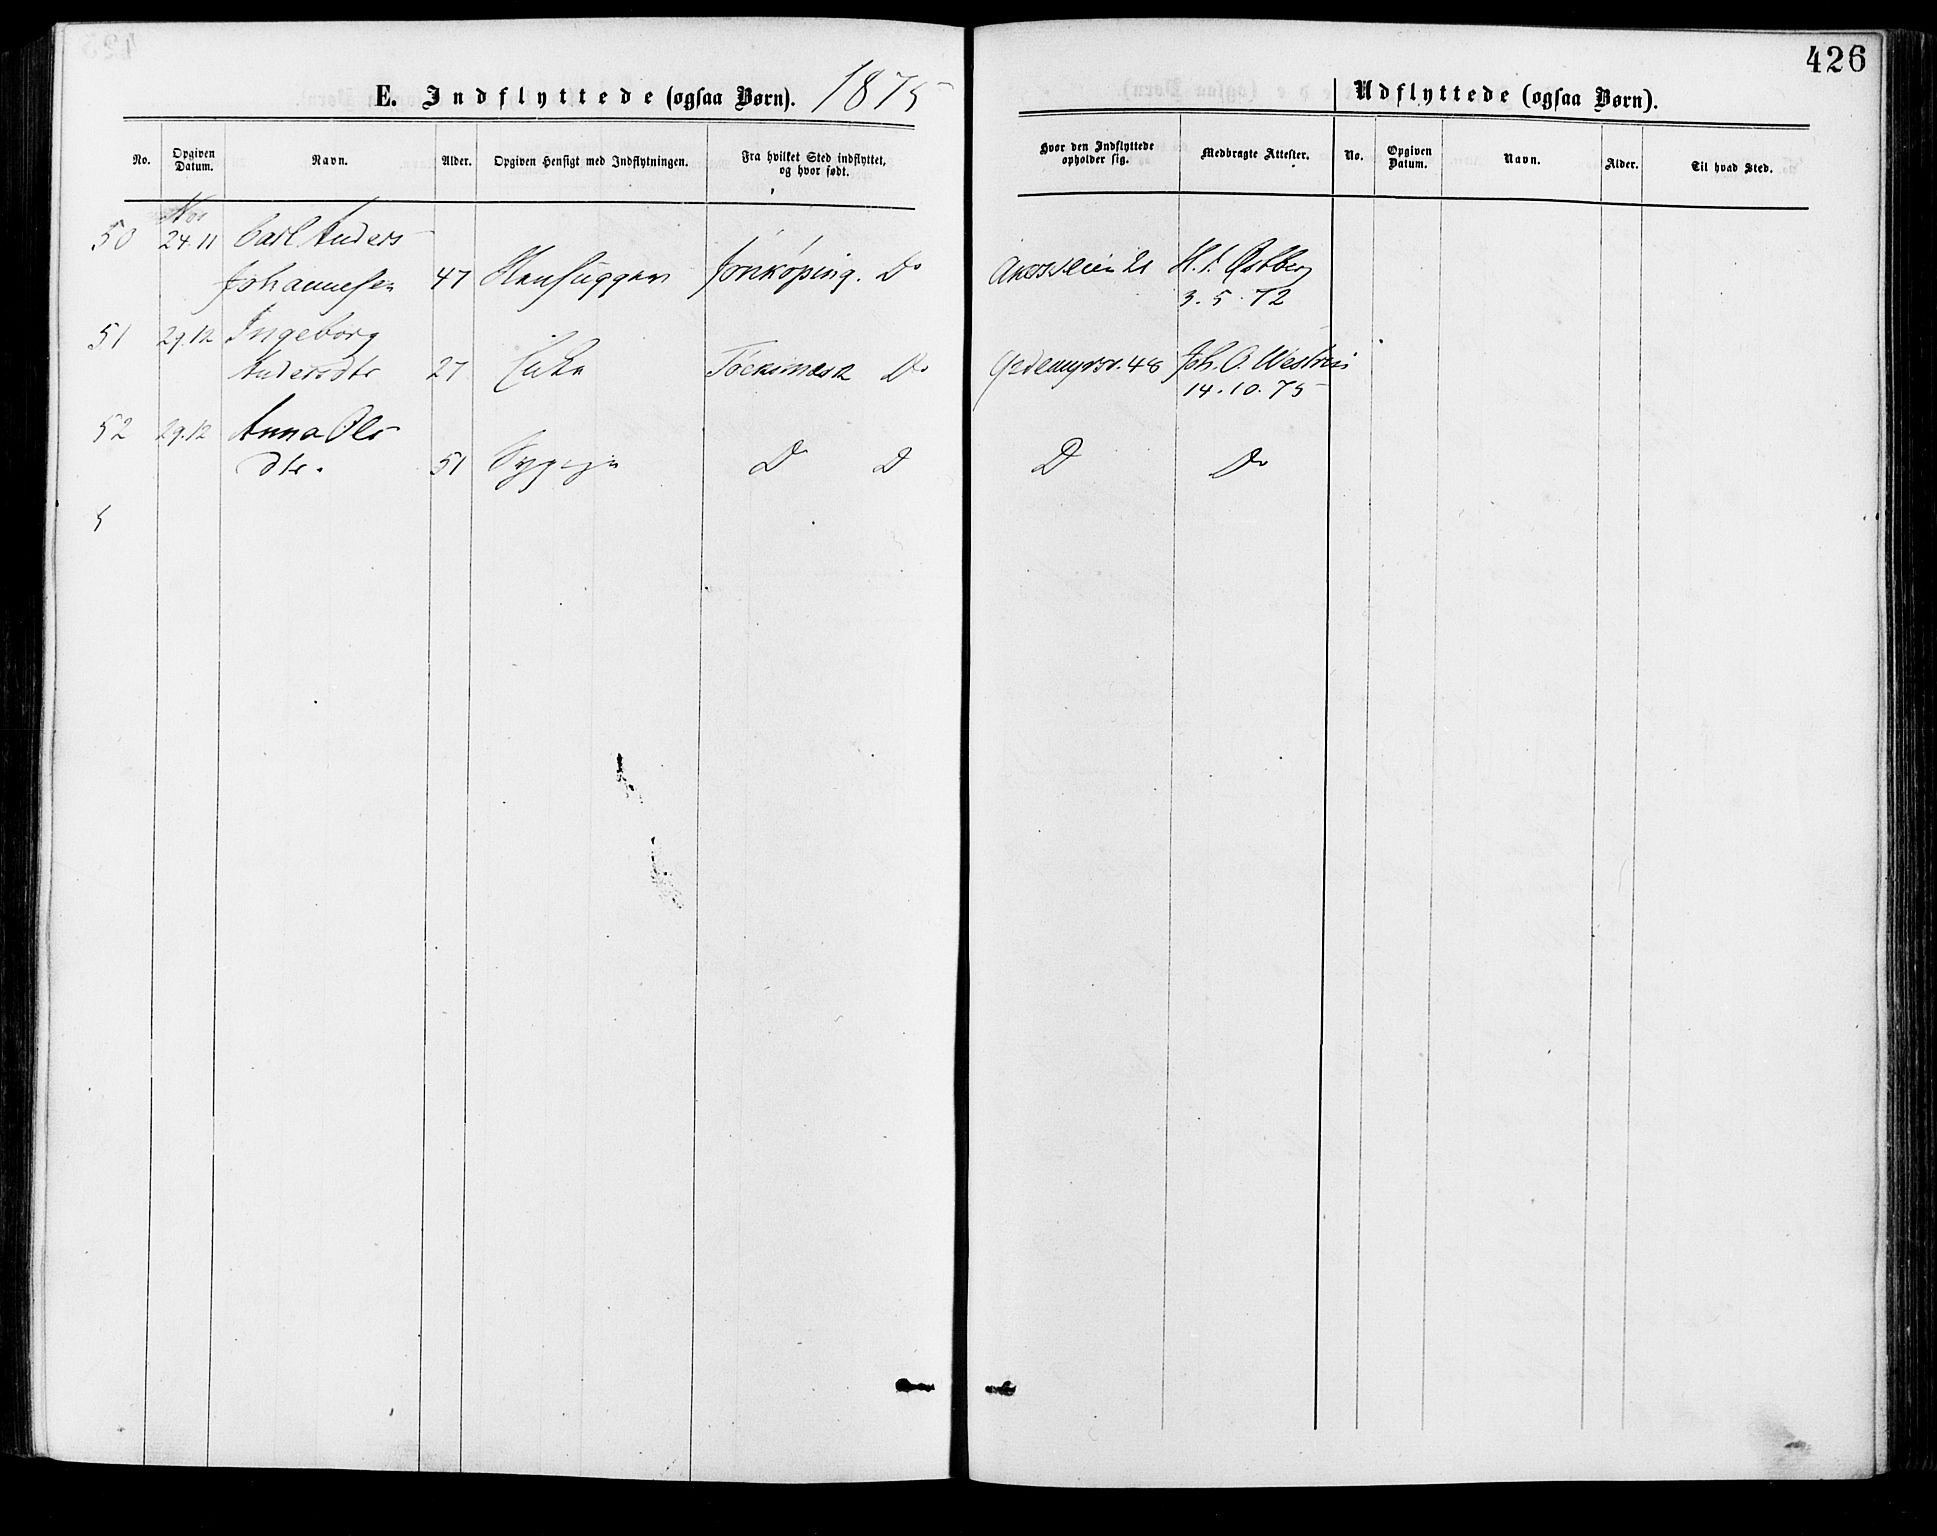 426
E. Indflyttede (ogsaa Børn). 1875
Udflyttede (ogsaa Børn).
No. Opgiven Datum. Navn. Alder. Opgiven Hensigt med Indflytningen. Fra hvilket Sted indflyttet, og hvor født. Hvor den Indflyttede opholder sig. Medbragte Attester. No. Opgiven Datum. Navn. Alder. Til hvad Sted.
Nov
50 24.11 Carl Anders
Johannesen 47 Stenhugger Jönköping. Do Akersveien 21 H. J. Østberg
3.5.72
51 29.12 Ingeborg
Andersdtr 27 Töcksmark Do 48 Joh. O.
14.10.75
52 29.12 Anna Ols
dtr. 51 D D D Do
5